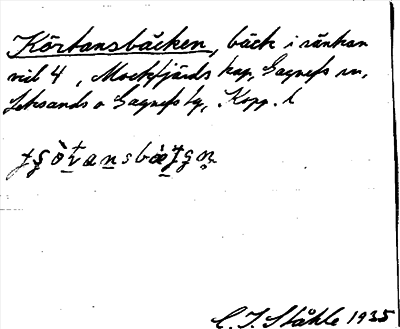 Körtansbäcken, bäck i rånkan
vid 4, Mockfjärds kap, Gagnefs sn,
Leksands o Gagnefs tg, Kopp. l
C. I. Ståhle 1935